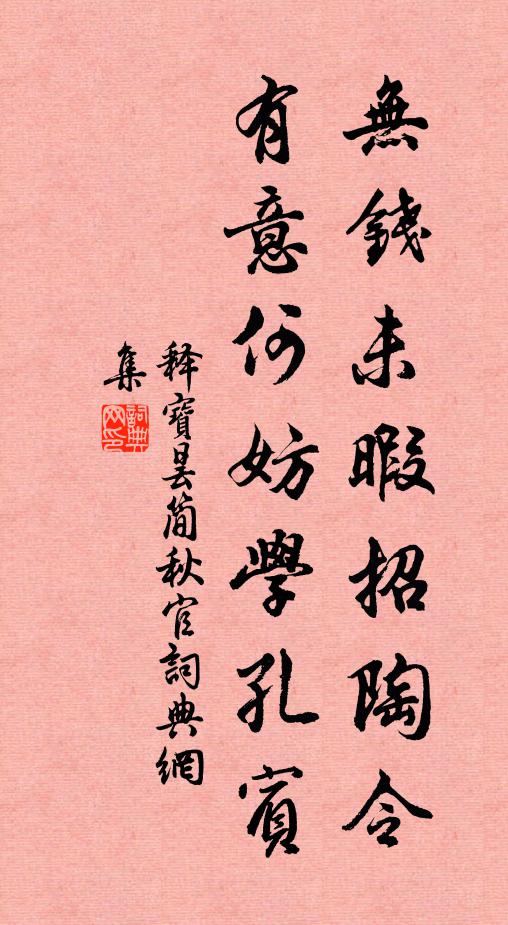 無錢未暇招陶令
有意何妨學孔賓
释寶曇簡秋官詞典網
集
詞典
网印